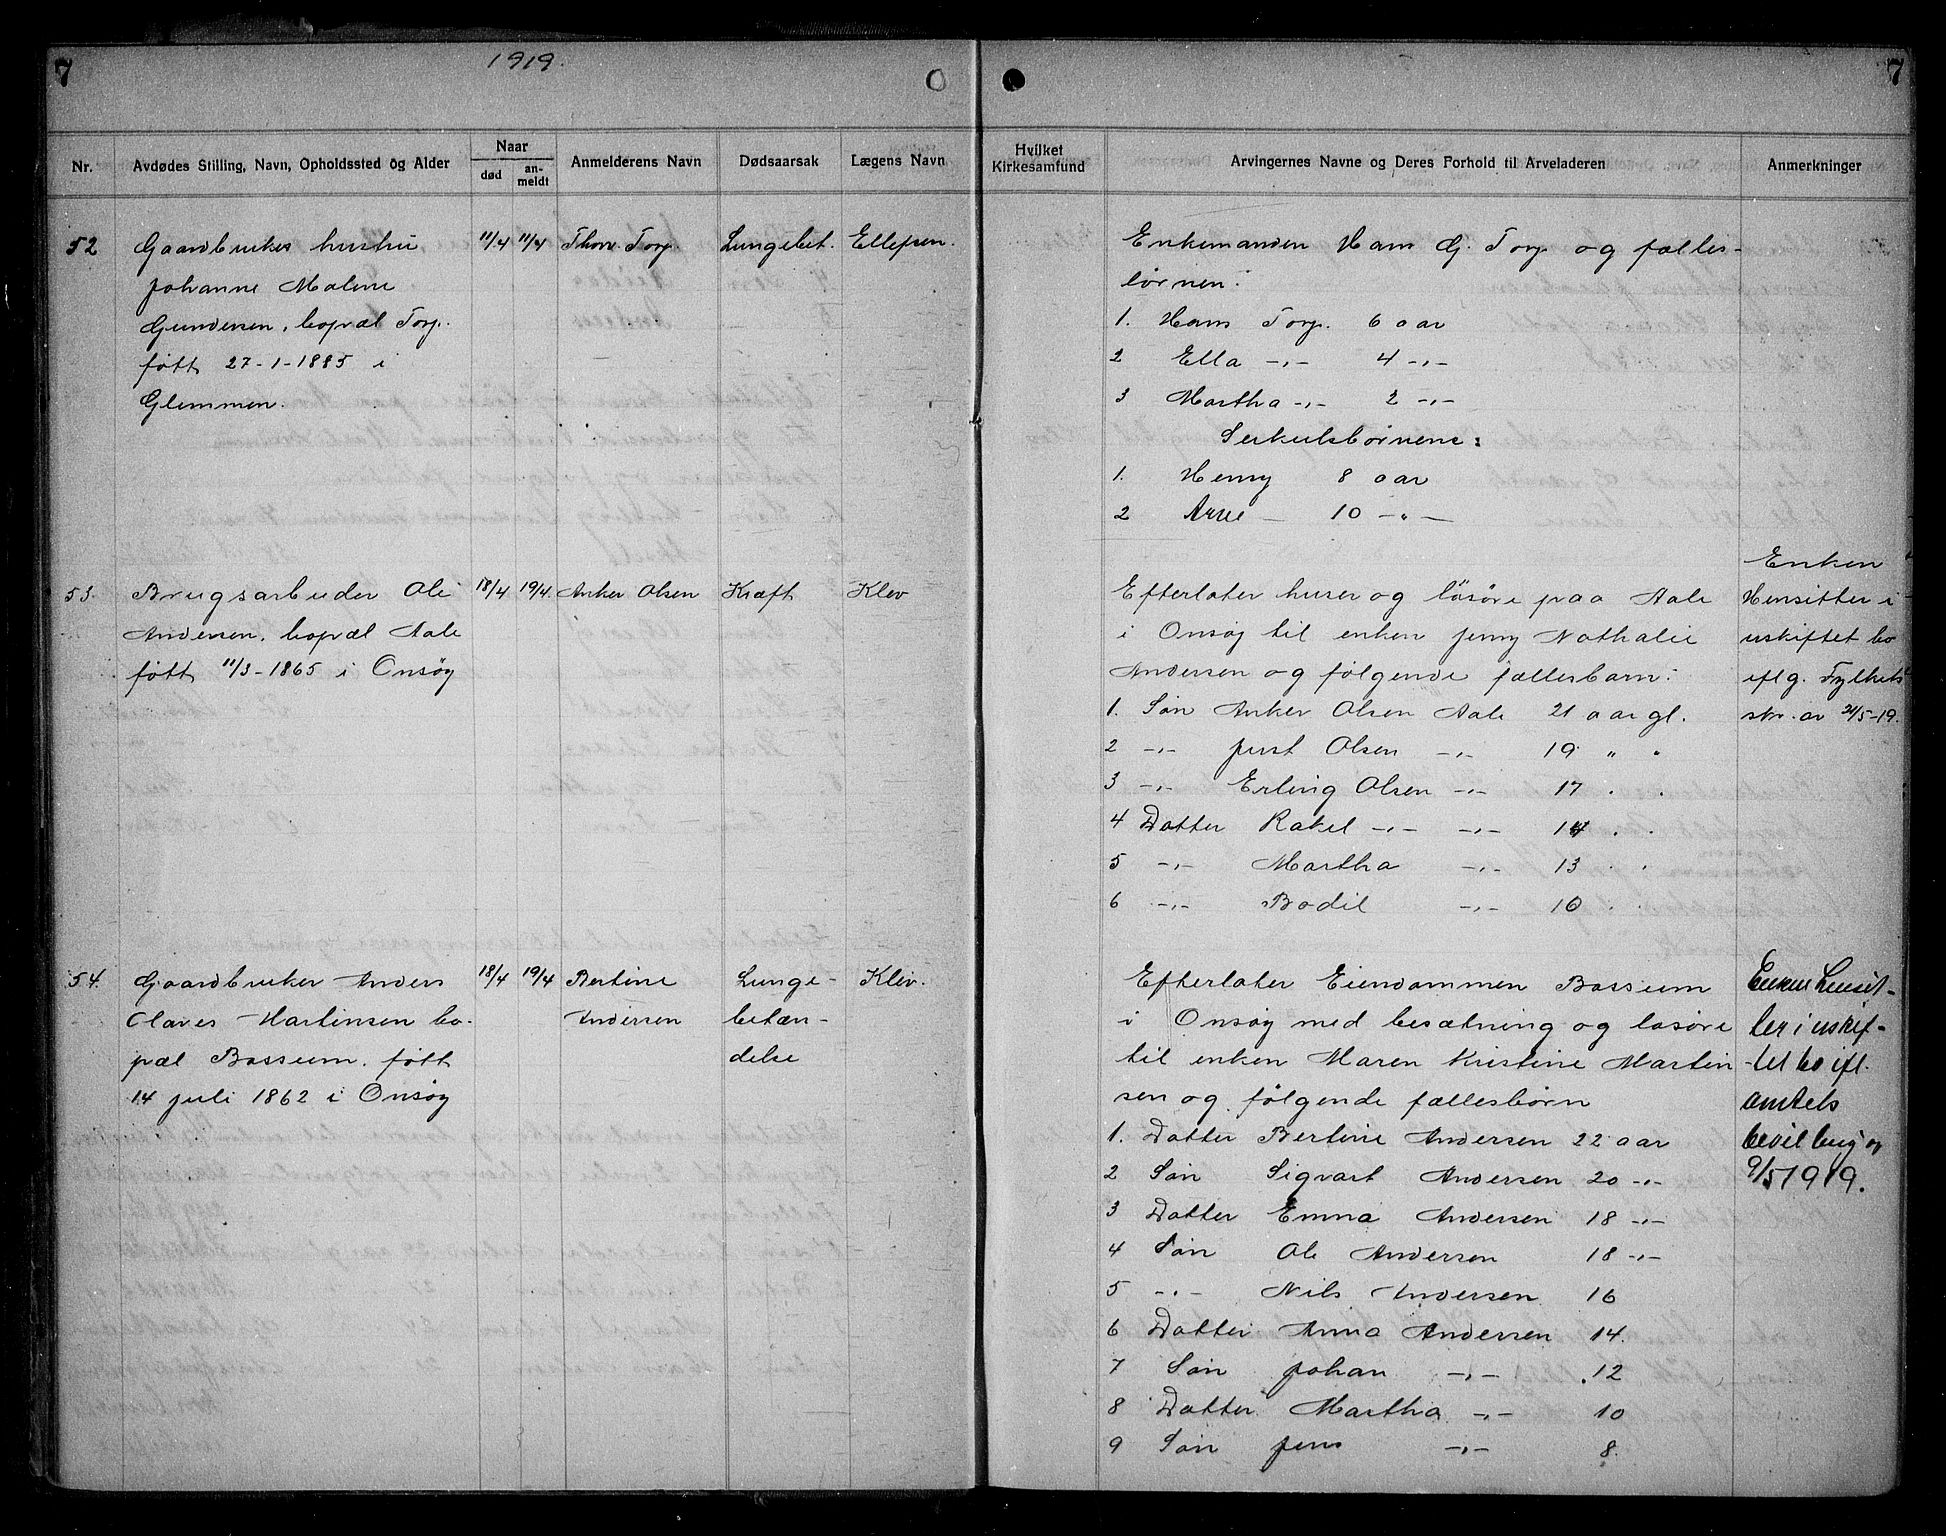 7
1919.
7
Nr.
Avdødes Stilling, Navn, Opholdssted og Alder
Naar
død
an-
meldt
Anmelderens Navn
Dødsaarsak
Lægens Navn
Hvilket
Kirkesamfund
Arvingernes Navne og Deres Forhold til Arveladeren
Anmerkninger
52
Gaardbrukes hustru
Johanne Malene
Gundersen, bopæl Torp.
født 27-1-1885 i
Glemmen.
11/4
11/4
Thorv. Torp.
Lungebet.
Ellefsen.
Enkemanden Hans G. Torp og fælles-
børnen:
1. Hans Torp. 6 aar
2 Ella -„- 4 -„-
3 Martha -„- 2 -„-
Serkulsbørnene:
1. Henry 8 aar
2 Arne — 10 -„-
53.
Brugsarbeider Ole
Andersen, bopæl Aale
født 11/3-1865 i Onsøy
18/4
19/4.
Anker Olsen
Kræft
Klev
Efterlater huser og løsøre paa Aale
i Onsøy til enken Jenny Nathalie
Andersen og følgende fællesbarn:
1. Søn Anker Olsen Aale 21 aar gl.
2 -„- Just Olsen -„- 19 „ „
3 -„- Erling Olsen -„- 17 . .
4 Datter Rakel -„- -„- 14 . .
5 -„- Martha -„- 13 . .
6 -„- Bodil -„- 10 . .
Enken
Hensitter i
uskiftet bo
iflg. Fylkets
skr. av 21/5-19.
54.
Gaardbruker Anders
Olaves Martinsen bo-
pæl Bossum. født
14 juli 1862 i Onsøy
18/4
19/4
Bertine
Andersen
Lunge-
betæn-
delse
Klev.
Efterlater Eiendommen Bossum
i Onsøy med besætning og løsøre
til enken Maren Kristine Martin
sen og følgende fællesbørn
1. Datter Bertine Andersen 22 aar
2 Søn Sigvart Andersen 20 -„-
3 Datter Emma Andersen 18 -„-
4 Søn Ole Andersen 18 -„-
5 -„- Nils Andersen 16
6 Datter Anna Andersen 14.
7 Søn Johan -„- 12
8 Datter Martha -„- 10
9 Søn Jens -„- 8.
Enken hensit-
ter i uskif-
-tet bo ifl.
amtets
bevilling av
9/5 1919.